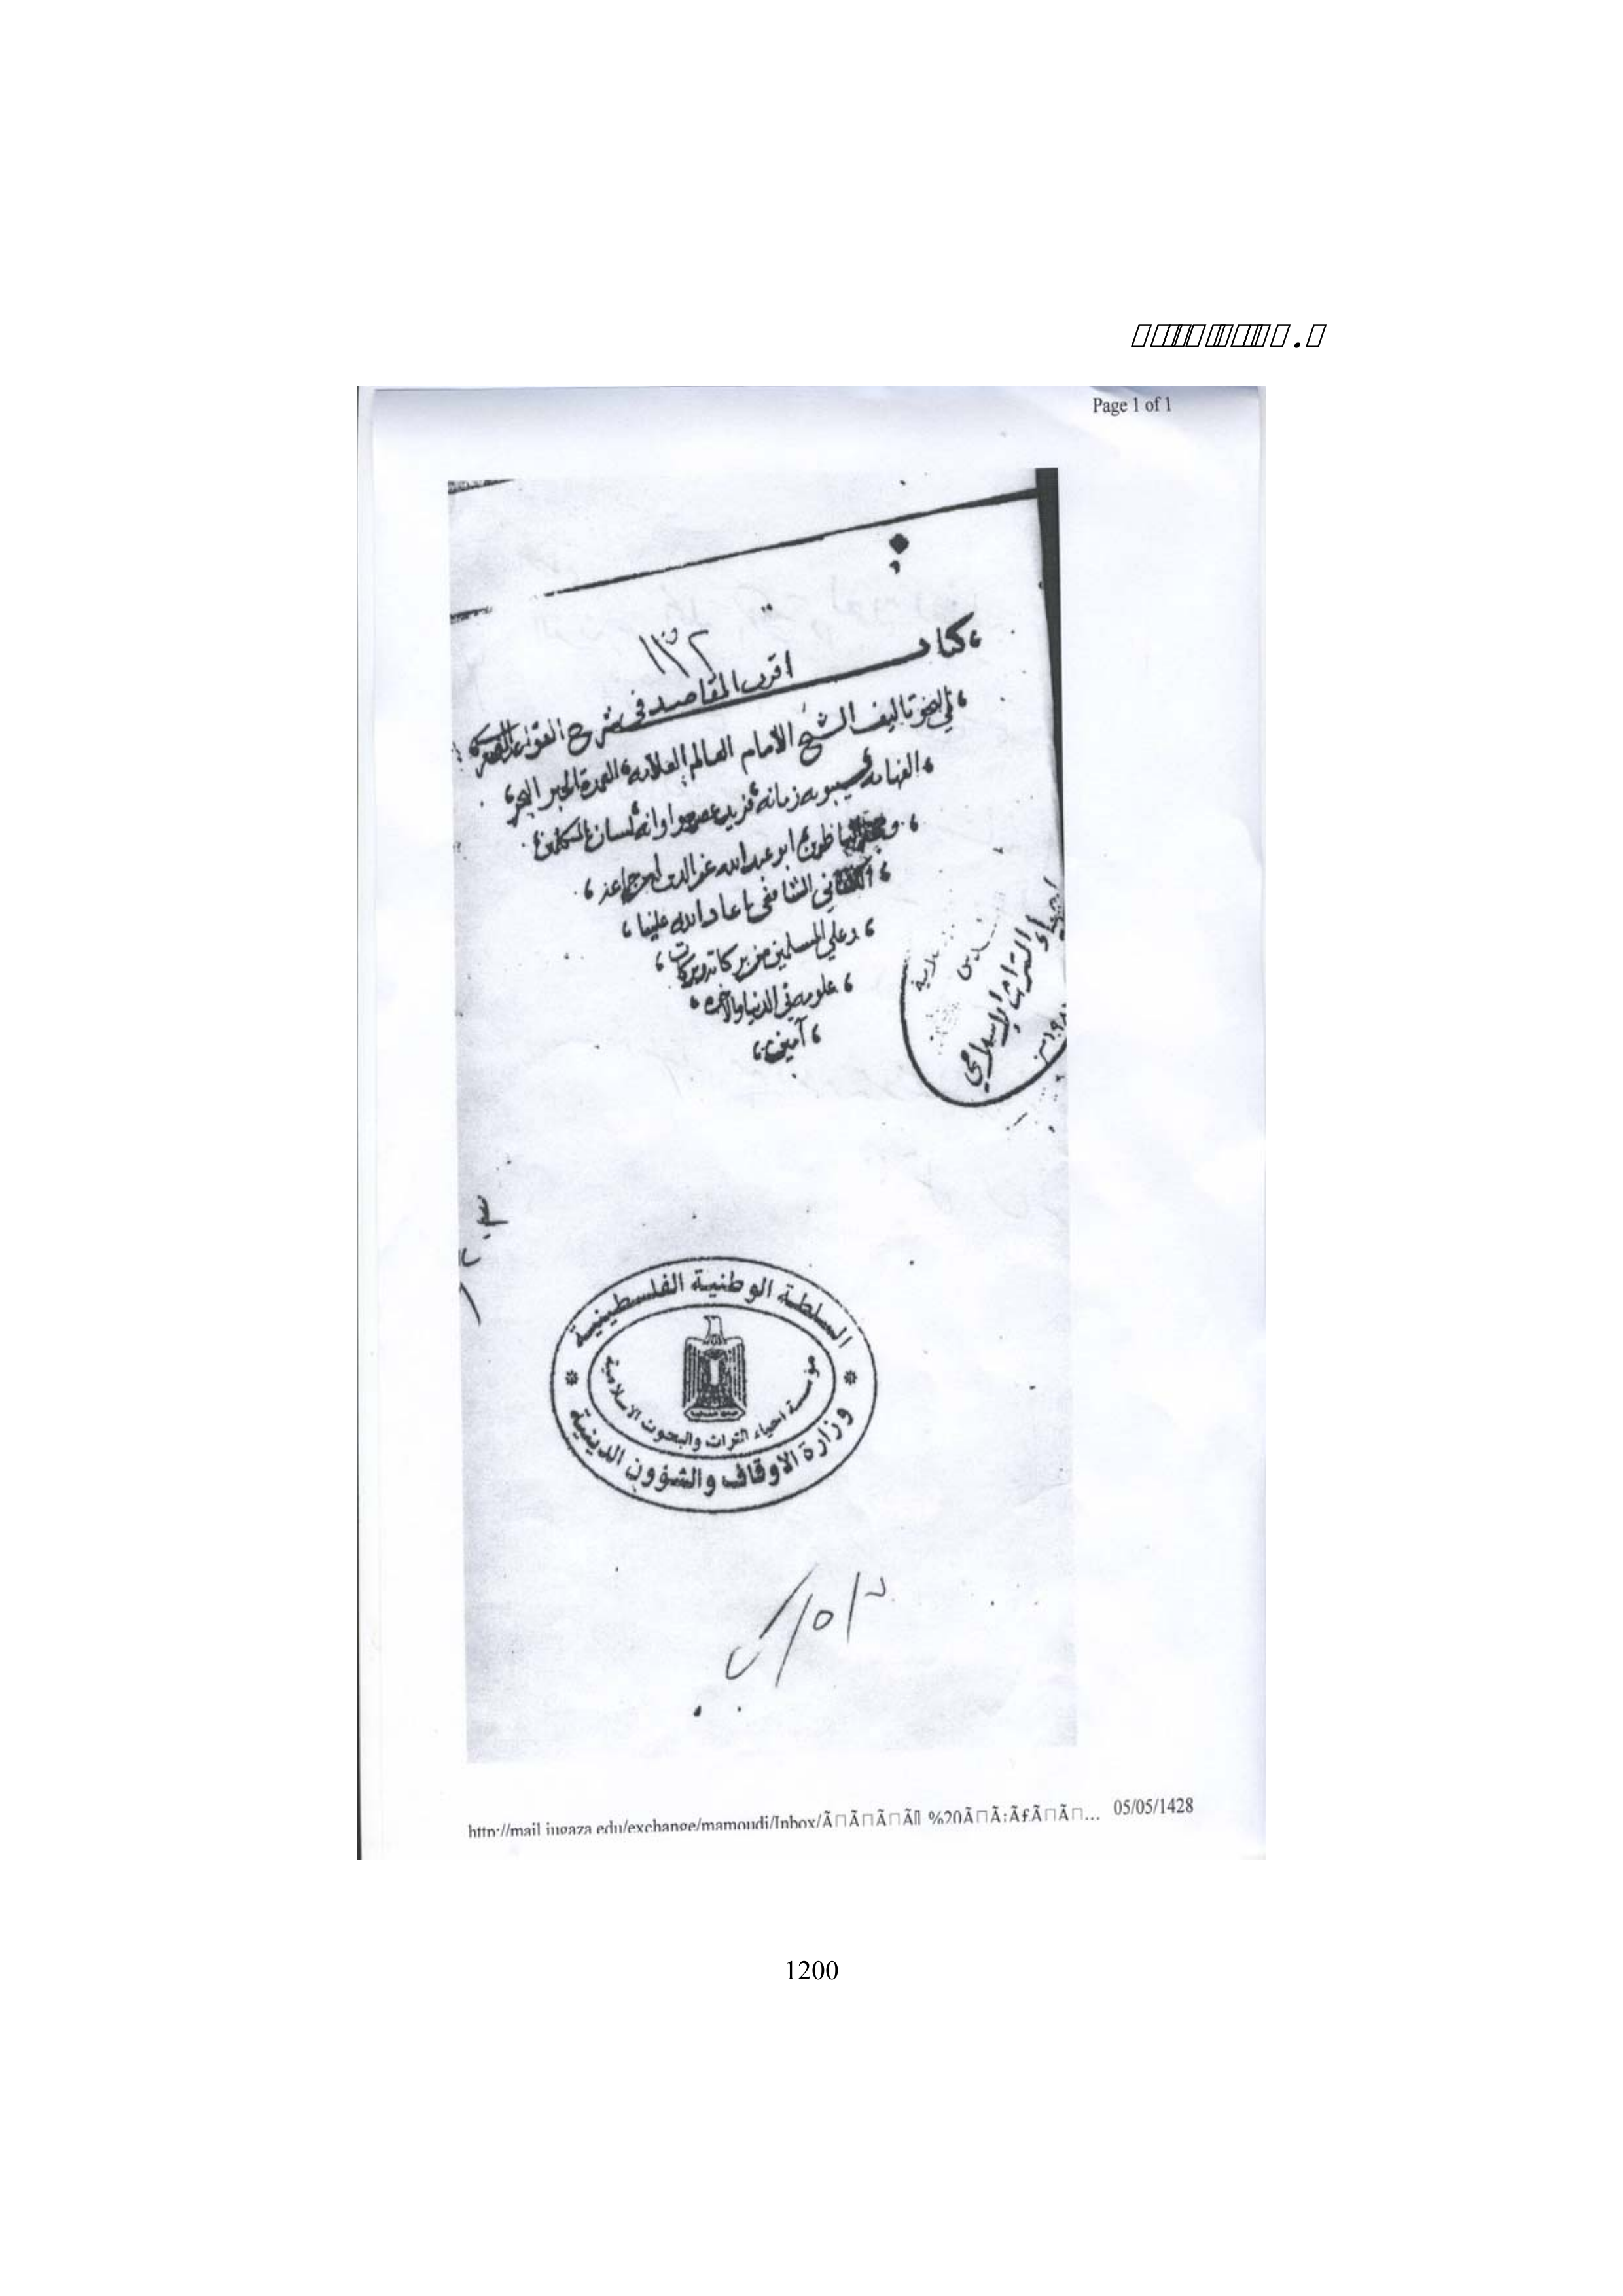 Page 1 of 1
كتاب
اقرب المقاصد في شرح القواعد الصغرى
في النحو تاليف الشيخ الامام العالم العلامه العمدة الحبر البحر
الفهامه سيبويه زمانه فريد عصره واوانه لسان المتكلمين
ابو عبد الله عز الدين ابن جماعه
الكناني الشافعي اعاد الله علينا
وعلي المسلمين من بركاته وبركات
علومه في الدنيا والآخره
آمين
احياء التراث الاسلامي
السلطة الوطنية الفلسطينية
مؤسسة احياء التراث والبحوث الاسلامية
وزارة الاوقاف والشؤون الدينية
http://mail.iugaza.edu/exchange/mamoudi/Inbox/
05/05/1428
1200